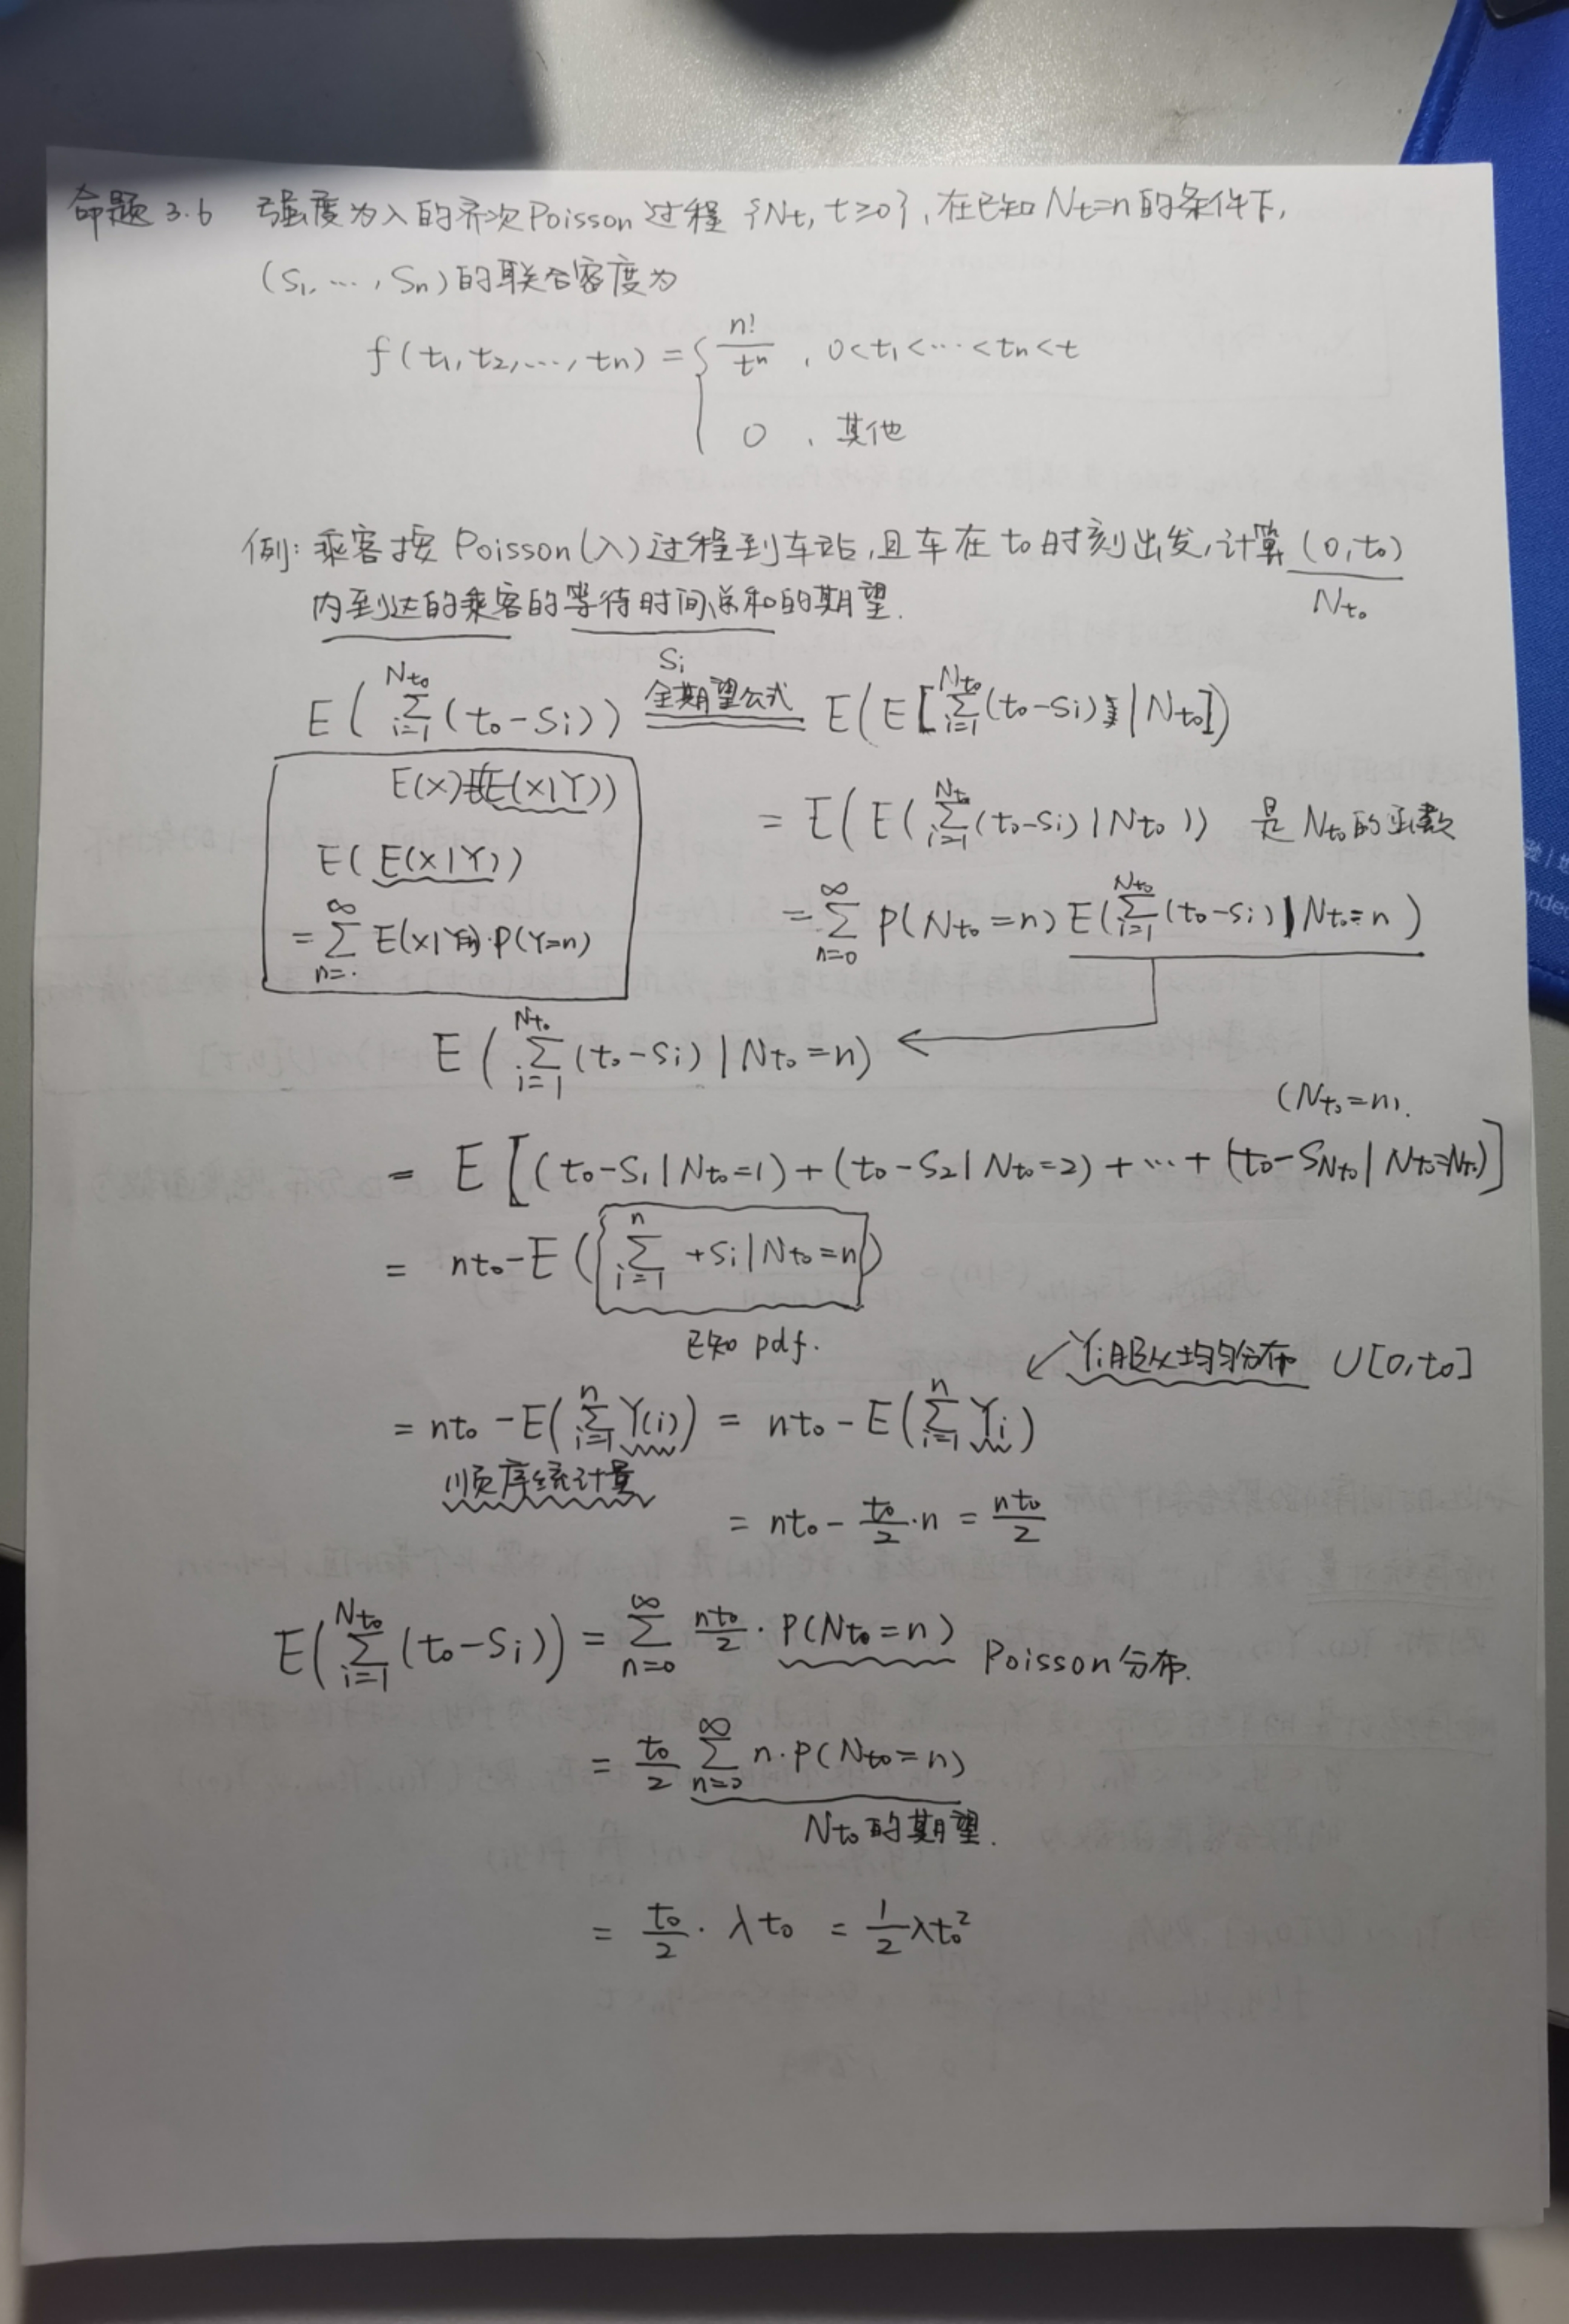 命题 3.6 强度为λ的齐次Poisson过程 {Nt, t≥0}, 在已知Nt=n的条件下,
(S1, …, Sn)的联合密度为
f(t1, t2, …, tn) = { n!/t^n , 0<t1<…<tn<t
0 , 其他
例: 乘客按 Poisson(λ)过程到车站, 且车在 t0 时刻出发, 计算 (0, t0)
内到达的乘客的等待时间总和的期望.
Nt0
Si
E(∑_{i=1}^{Nt0}(t0-Si)) 全期望公式 = E(E[∑_{i=1}^{Nt0}(t0-Si)|Nt0])
E(X)=E(E(X|Y))
= E(E(∑_{i=1}^{Nt0}(t0-Si)|Nt0)) 是 Nt0的函数
E(E(X|Y))
= ∑_{n=0}^{∞} P(Nt0=n) E(∑_{i=1}^{Nt0}(t0-Si)|Nt0=n)
= ∑_{n=·}^{∞} E(X|Y=n)·P(Y=n)
E(∑_{i=1}^{Nt0}(t0-Si)|Nt0=n)
(Nt0=n).
= E[(t0-S1|Nt0=1)+(t0-S2|Nt0=2)+…+(t0-SNt0|Nt0=Nt0)]
= nt0-E(∑_{i=1}^{n} +Si|Nt0=n)
已知 pdf.
Yi服从均匀分布 U[0,t0]
= nt0-E(∑_{i=1}^{n} Y(i)) = nt0-E(∑_{i=1}^{n} Yi)
顺序统计量
= nt0 - t0/2·n = nt0/2
E(∑_{i=1}^{Nt0}(t0-Si)) = ∑_{n=0}^{∞} nt0/2 · P(Nt0=n) Poisson分布.
= t0/2 ∑_{n=0}^{∞} n·P(Nt0=n)
Nt0的期望.
= t0/2 · λt0 = 1/2 λt0²